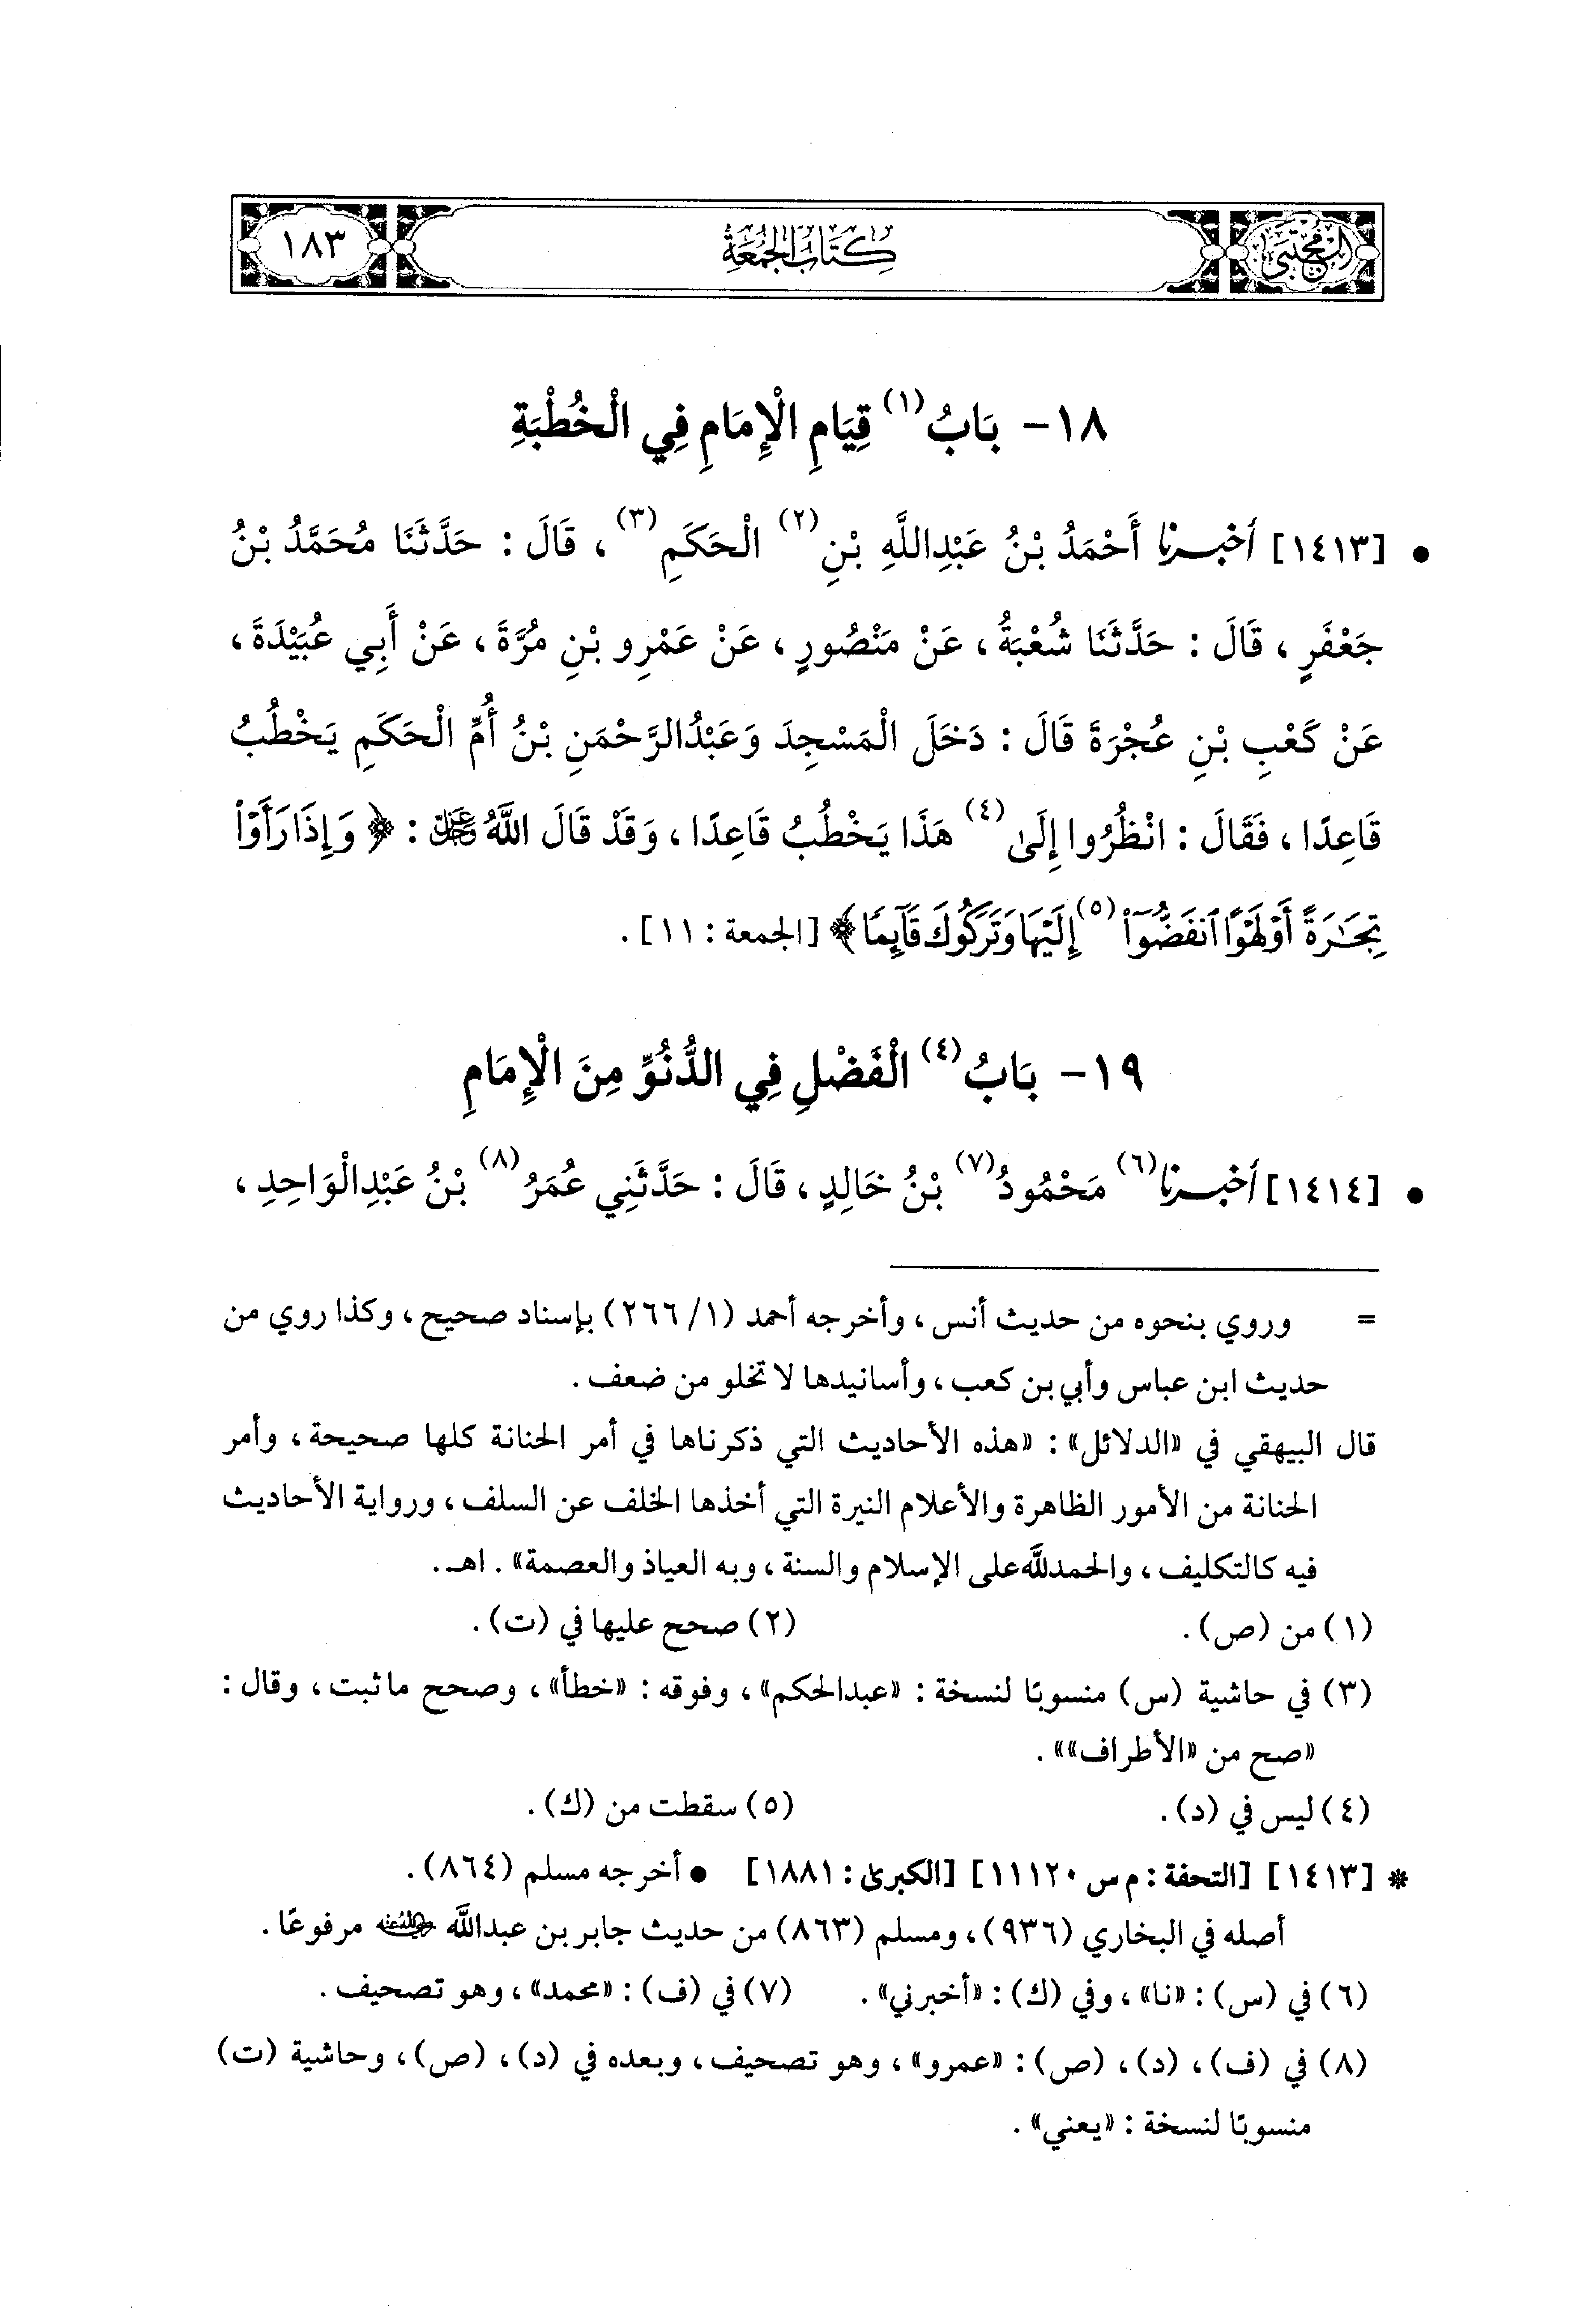 المجتبى
كتاب الجمعة
١٨٣
١٨- بَابُ (١) قِيَامِ الْإِمَامِ فِي الْخُطْبَةِ
• [١٤١٣] أَخْبَرَنَا أَحْمَدُ بْنُ عَبْدِاللَّهِ بْنِ (٢) الْحَكَمِ (٣) ، قَالَ : حَدَّثَنَا مُحَمَّدُ بْنُ
جَعْفَرٍ ، قَالَ : حَدَّثَنَا شُعْبَةُ ، عَنْ مَنْصُورٍ ، عَنْ عَمْرِو بْنِ مُرَّةَ ، عَنْ أَبِي عُبَيْدَةَ ،
عَنْ كَعْبِ بْنِ عُجْرَةَ قَالَ : دَخَلَ الْمَسْجِدَ وَعَبْدُالرَّحْمَنِ بْنُ أُمِّ الْحَكَمِ يَخْطُبُ
قَاعِدًا ، فَقَالَ : انْظُرُوا إِلَى (٤) هَذَا يَخْطُبُ قَاعِدًا ، وَقَدْ قَالَ اللَّهُ عَزَّوَجَلَّ : ﴿ وَإِذَا رَأَوْا۟
تِجَـٰرَةً أَوْ لَهْوًا ٱنفَضُّوٓا۟ (٥) إِلَيْهَا وَتَرَكُوكَ قَآئِمًا ﴾ [الجمعة : ١١] .
١٩- بَابُ (٤) الْفَضْلِ فِي الدُّنُوِّ مِنَ الْإِمَامِ
• [١٤١٤] أَخْبَرَنَا (٦) مَحْمُودُ (٧) بْنُ خَالِدٍ ، قَالَ : حَدَّثَنِي عُمَرُ (٨) بْنُ عَبْدِالْوَاحِدِ ،
= وروي بنحوه من حديث أنس ، وأخرجه أحمد (١/ ٢٦٦) بإسناد صحيح ، وكذا روي من
حديث ابن عباس وأبي بن كعب ، وأسانيدها لا تخلو من ضعف .
قال البيهقي في «الدلائل» : «هذه الأحاديث التي ذكرناها في أمر الحنانة كلها صحيحة ، وأمر
الحنانة من الأمور الظاهرة والأعلام النيرة التي أخذها الخلف عن السلف ، ورواية الأحاديث
فيه كالتكليف ، والحمدلله على الإسلام والسنة ، وبه العياذ والعصمة» . اهـ .
(١) من (ص) . (٢) صحح عليها في (ت) .
(٣) في حاشية (س) منسوبًا لنسخة : «عبدالحكم» ، وفوقه : «خطأ» ، وصحح ما ثبت ، وقال :
«صح من «الأطراف»» .
(٤) ليس في (د) . (٥) سقطت من (ك) .
* [١٤١٣] [التحفة : م س ١١١٢٠] [الكبرى : ١٨٨١] • أخرجه مسلم (٨٦٤) .
أصله في البخاري (٩٣٦) ، ومسلم (٨٦٣) من حديث جابر بن عبدالله رضي الله عنه مرفوعًا .
(٦) في (س) : «نا» ، وفي (ك) : «أخبرني» . (٧) في (ف) : «محمد» ، وهو تصحيف .
(٨) في (ف) ، (د) ، (ص) : «عمرو» ، وهو تصحيف ، وبعده في (د) ، (ص) ، وحاشية (ت)
منسوبًا لنسخة : «يعني» .